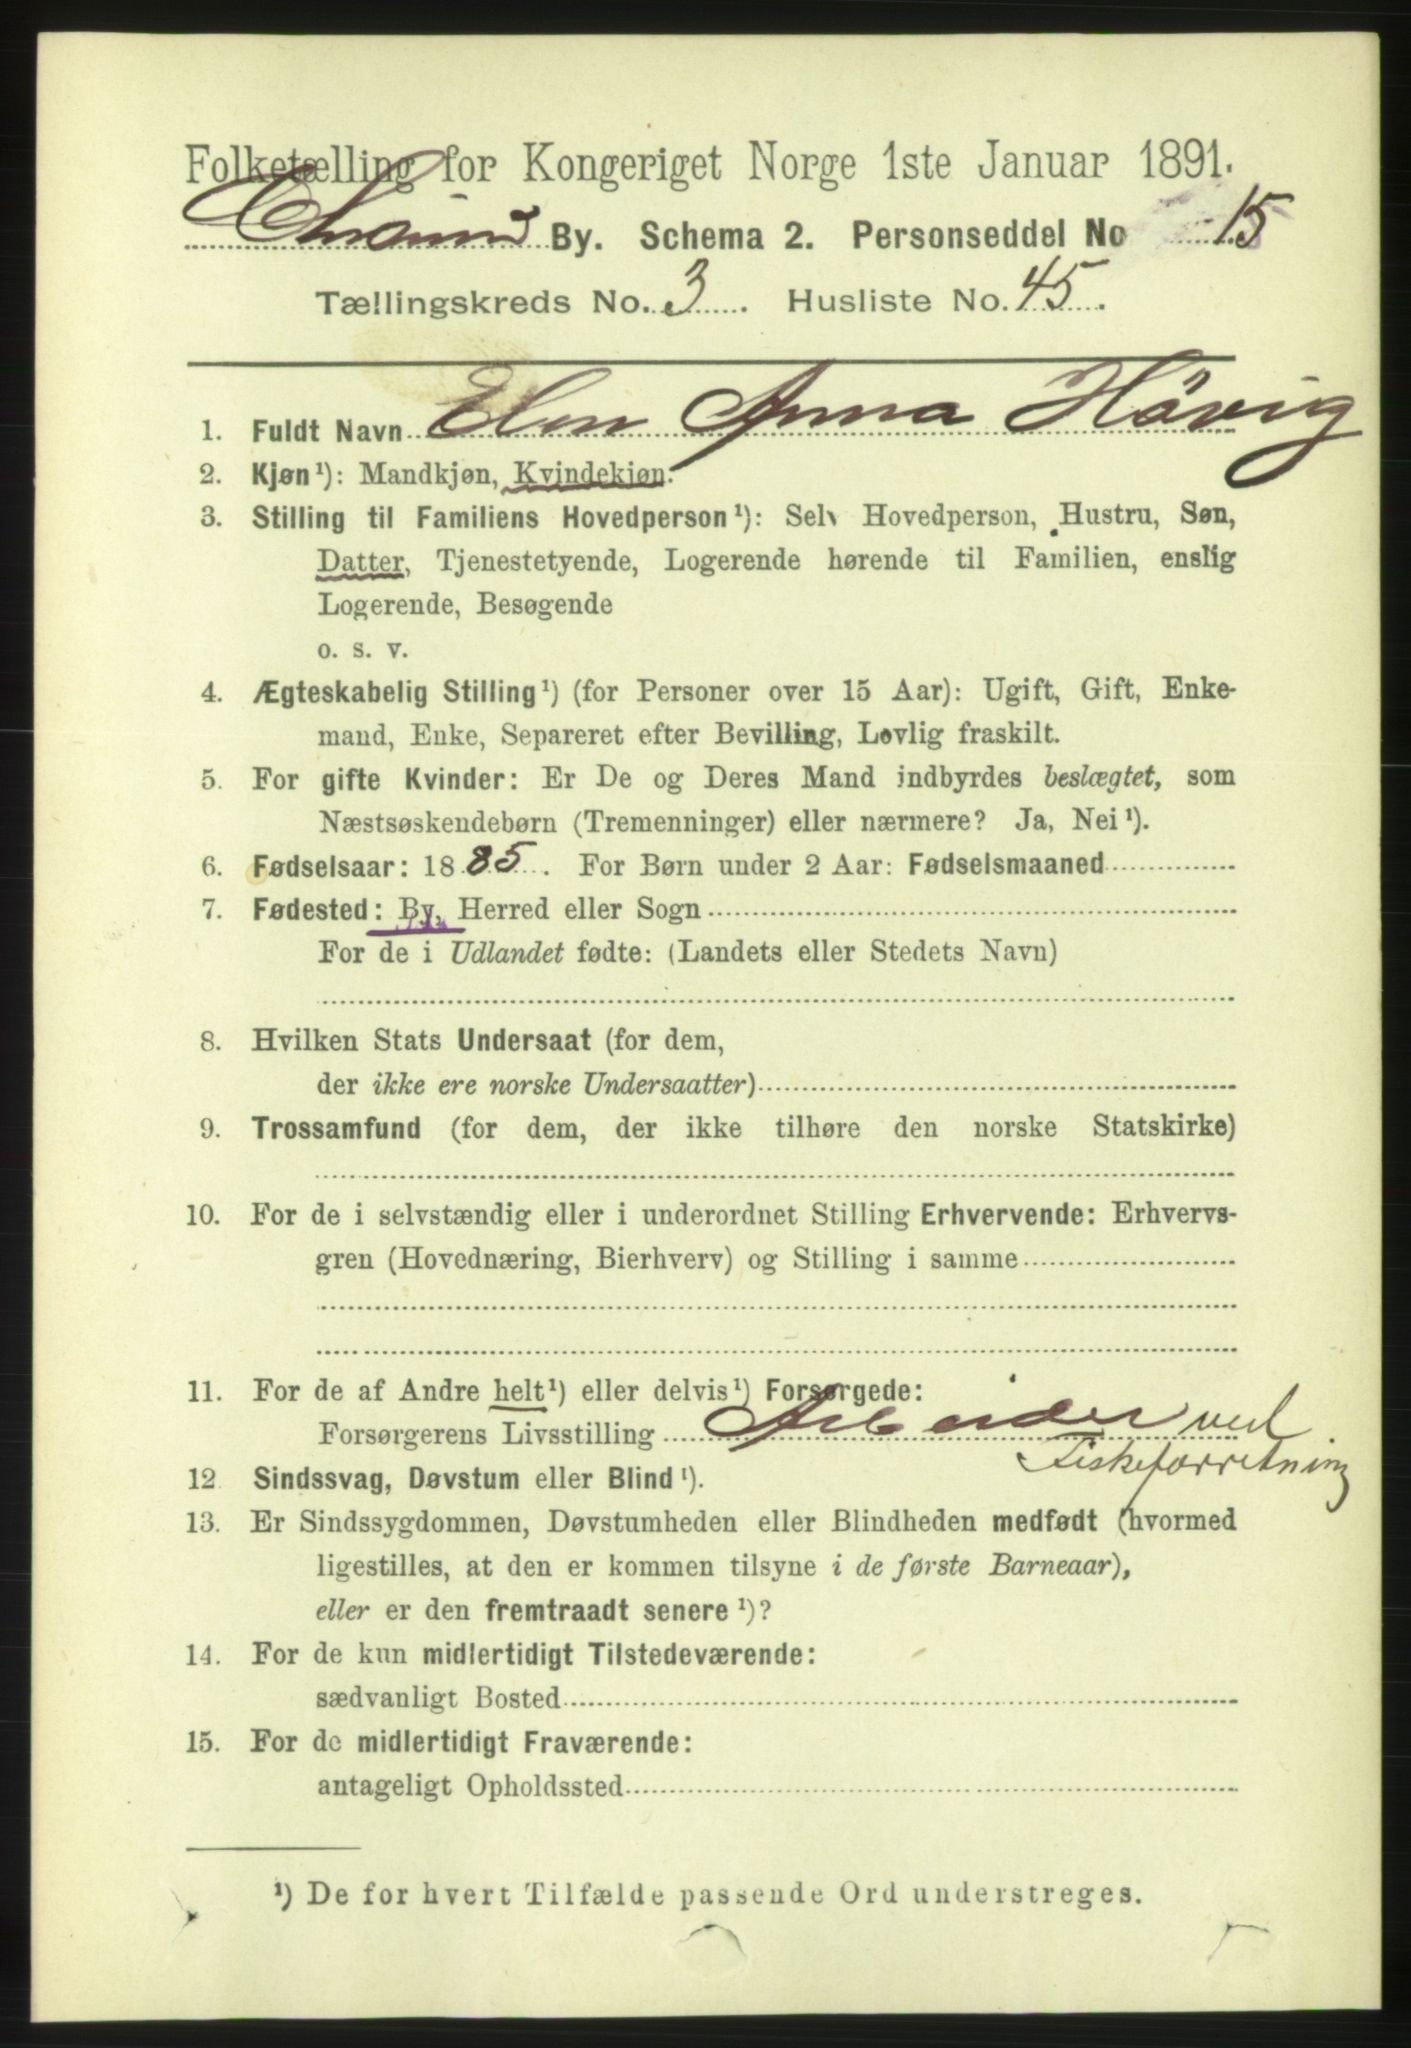 Folketælling for Kongeriget Norge 1ste Januar 1891.
Chrsund By. Schema 2. Personseddel No 15
Tællingskreds No. 3. Husliste No. 45.
1. Fuldt Navn Elen Anna Hövig
2. Kjøn¹): Mandkjøn, Kvindekjøn.
3. Stilling til Familiens Hovedperson¹): Selv Hovedperson, Hustru, Søn,
Datter, Tjenestetyende, Logerende hørende til Familien, enslig
Logerende, Besøgende
o. s. v.
4. Ægteskabelig Stilling¹) (for Personer over 15 Aar): Ugift, Gift, Enke-
mand, Enke, Separeret efter Bevilling, Lovlig fraskilt.
5. For gifte Kvinder: Er De og Deres Mand indbyrdes beslægtet, som
Næstsøskendebørn (Tremenninger) eller nærmere? Ja, Nei¹).
6. Fødselsaar: 1885. For Børn under 2 Aar: Fødselsmaaned
7. Fødested: By, Herred eller Sogn
For de i Udlandet fødte: (Landets eller Stedets Navn)
8. Hvilken Stats Undersaat (for dem,
der ikke ere norske Undersaatter)
9. Trossamfund (for dem, der ikke tilhøre den norske Statskirke)
10. For de i selvstændig eller i underordnet Stilling Erhvervende: Erhvervs-
gren (Hovednæring, Bierhverv) og Stilling i samme
11. For de af Andre helt¹) eller delvis¹) Forsørgede:
Forsørgerens Livsstilling Arbeider ved
Fiskeforretning
12 Sindssvag, Døvstum eller Blind¹).
13. Er Sindssygdommen, Døvstumheden eller Blindheden medfødt (hvormed
ligestilles, at den er kommen tilsyne i de første Barneaar),
eller er den fremtraadt senere¹)?
14. For de kun midlertidigt Tilstedeværende:
sædvanligt Bosted
15. For de midlertidigt Fraværende:
antageligt Opholdssted
¹) De for hvert Tilfælde passende Ord understreges.